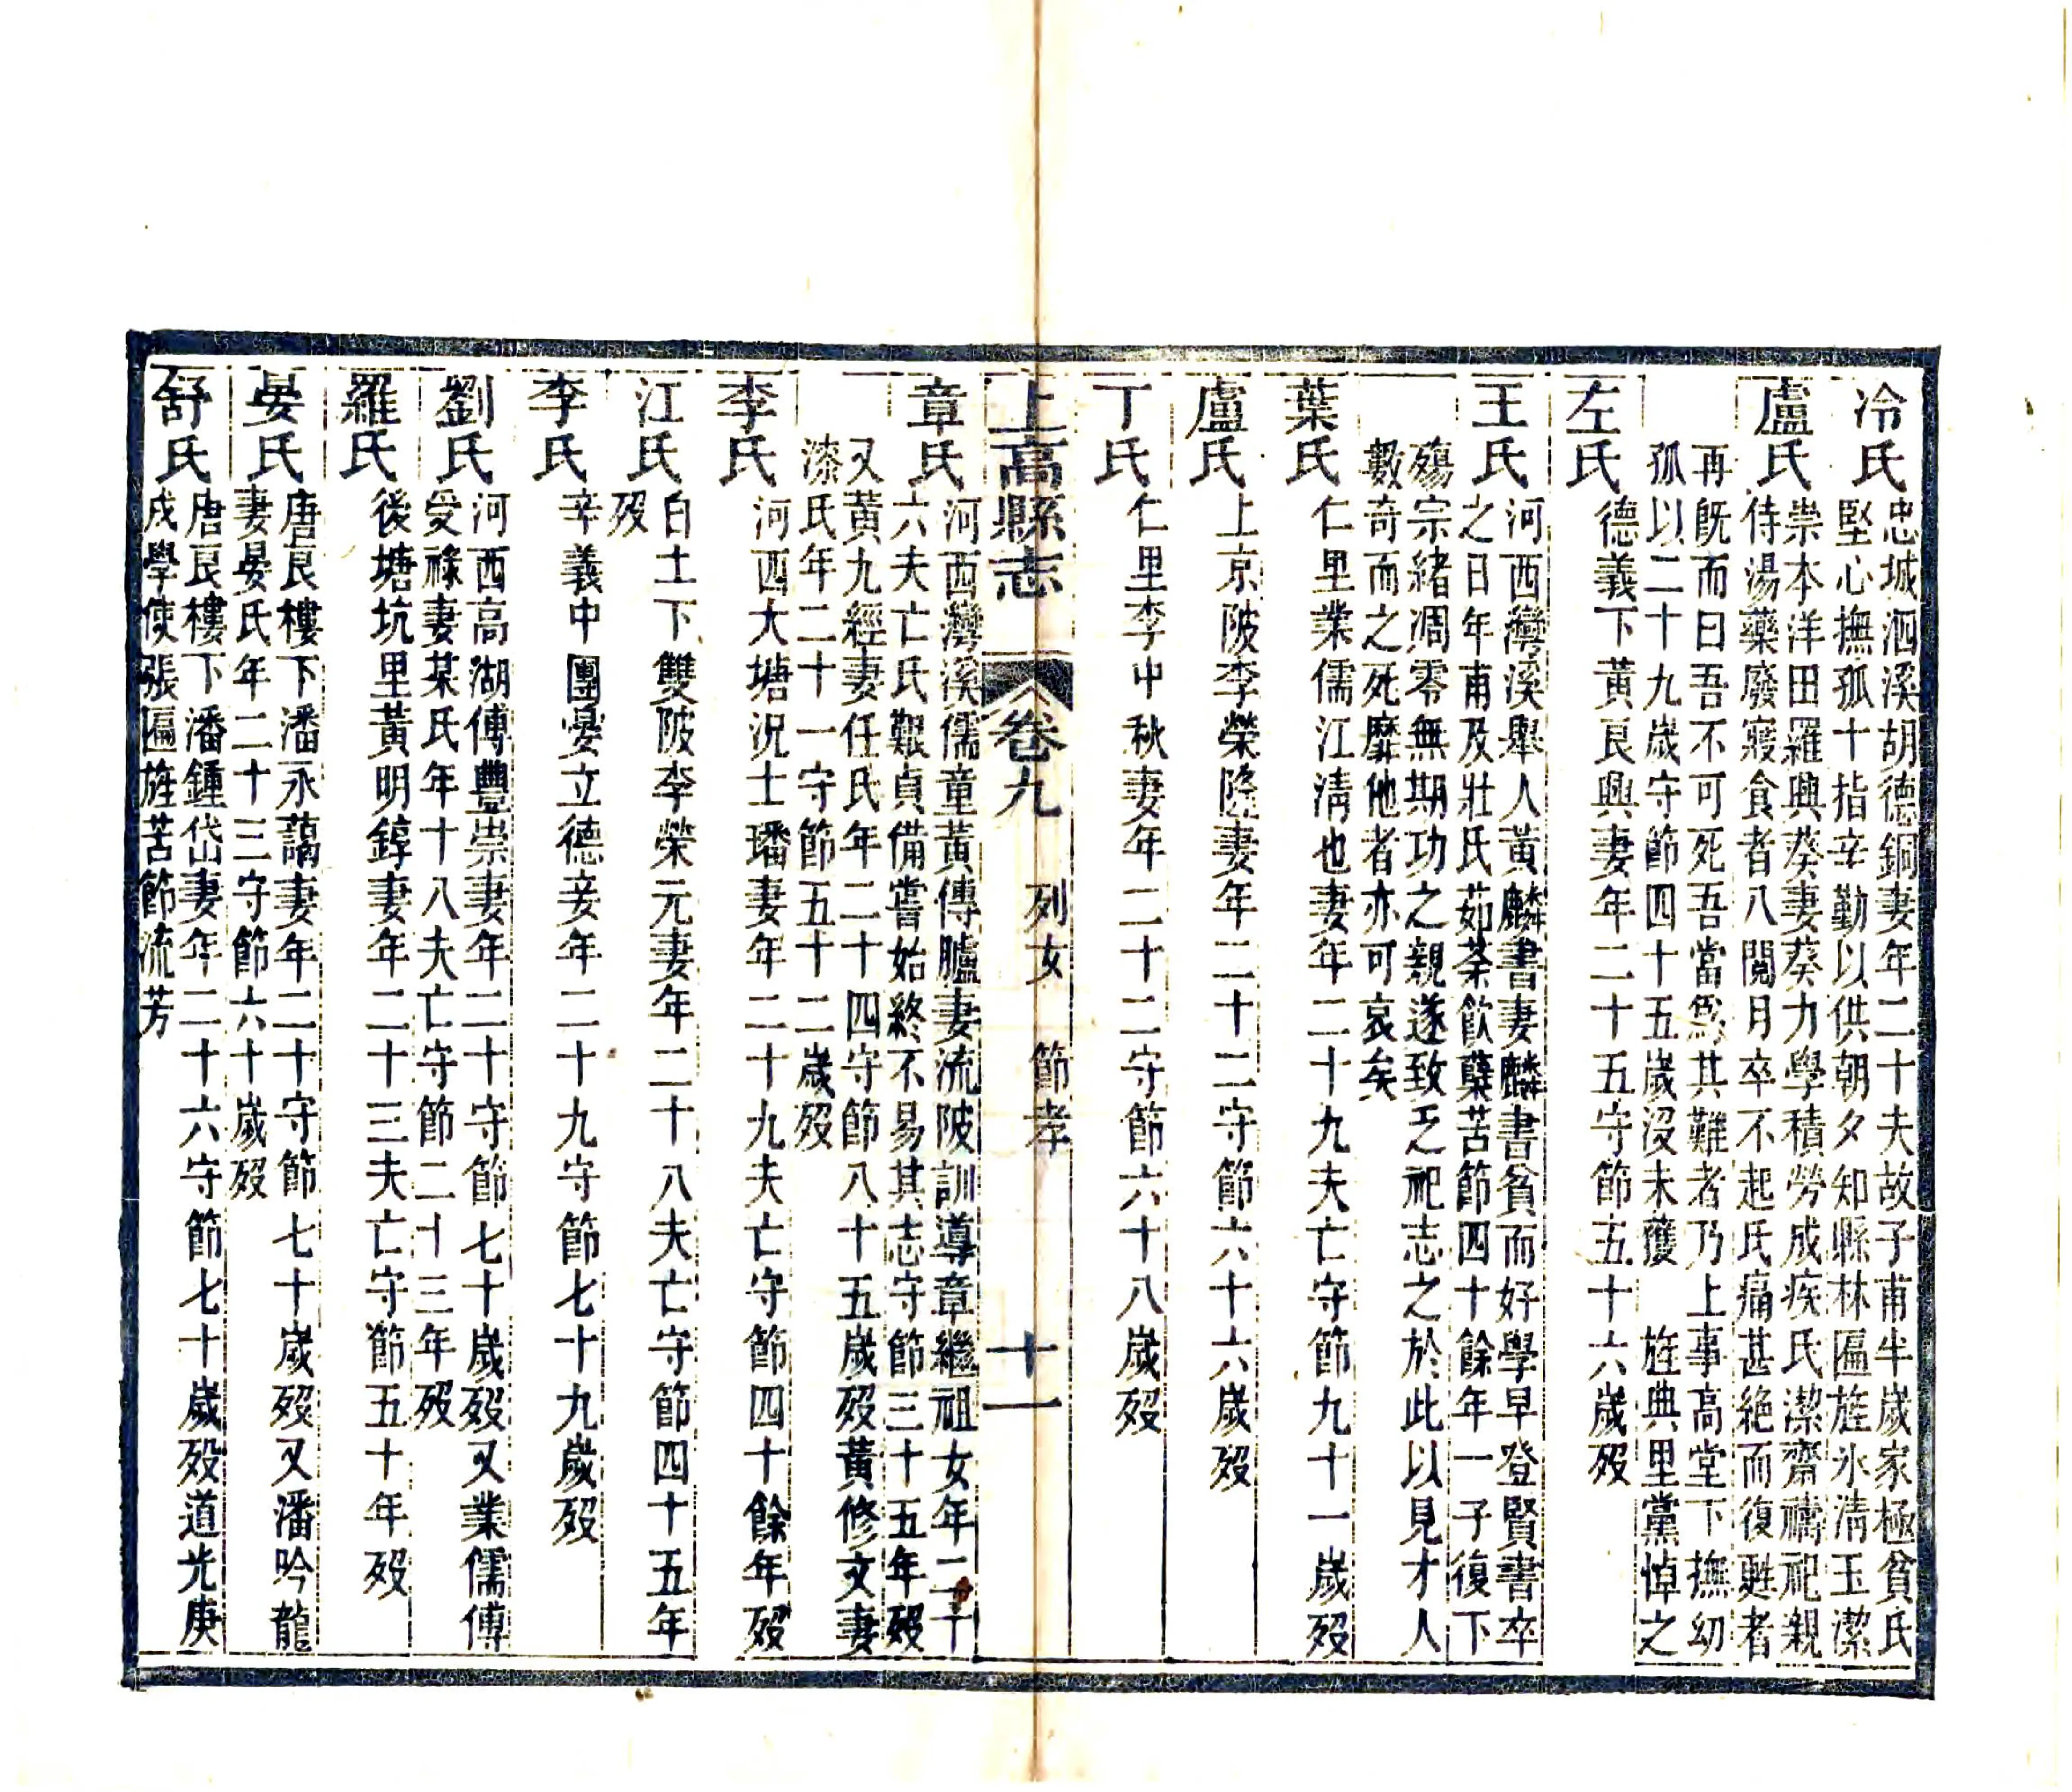 冷氏
忠城泗溪胡德銅妻年二十夫故子甫半歲家極貧氏
堅心撫孤十指辛勤以供朝夕知縣林匾旌氷淸玉潔
盧氏
崇本洋田羅興葵妻葵力學積勞成疾氏潔齋禱祀親
侍湯藥廢寢食者八閱月卒不起氏痛甚絶而復甦者
再旣而曰吾不可死吾當爲其難者乃上事高堂下撫幼
孤以二十九歲守節四十五歲沒未獲 旌典里黨悼之
左氏
德義下黃艮興妻年二十五守節五十六歲歿
王氏
河西灣溪舉人黃麟書妻麟書貧而好學早登賢書卒
之日年甫及壯氏茹荼飮蘗苦節四十餘年一子復下
殤宗緒凋零無期功之親遂致乏祀志之於此以見才人
數奇而之死靡他者亦可哀矣
葉氏
仁里業儒江淸也妻年二十九夫亡守節九十一歲歿
盧氏
上京陂李榮隆妻年二十二守節六十六歲歿
丁氏
仁里李中秋妻年二十二守節六十八歲歿
上高縣志 卷九 列女 節孝 十一
章氏
河西灣溪儒童黃傳臚妻流陂訓導章繼祖女年二十
六夫亡氏艱貞備嘗始終不易其志守節三十五年歿
又黃九經妻任氏年二十四守節八十五歲歿黃修文妻
漆氏年二十一守節五十二歲歿
李氏
河西大塘況士璠妻年二十九夫亡守節四十餘年歿
江氏
白土下雙陂李榮元妻年二十八夫亡守節四十五年
歿
李氏
辛義中團晏立德妾年二十九守節七十九歲歿
劉氏
河西高湖傅豐崇妻年二十守節七十歲歿又業儒傅
受祿妻某氏年十八夫亡守節二十三年歿
羅氏
後塘坑里黃明錞妻年二十三夫亡守節五十年歿
晏氏
唐艮樓下潘永藹妻年二十守節七十歲歿又潘吟龍
妻晏氏年二十三守節六十歲歿
舒氏
唐艮樓下潘鍾岱妻年二十六守節七十歲歿道光庚
戌學使張匾旌苦節流芳